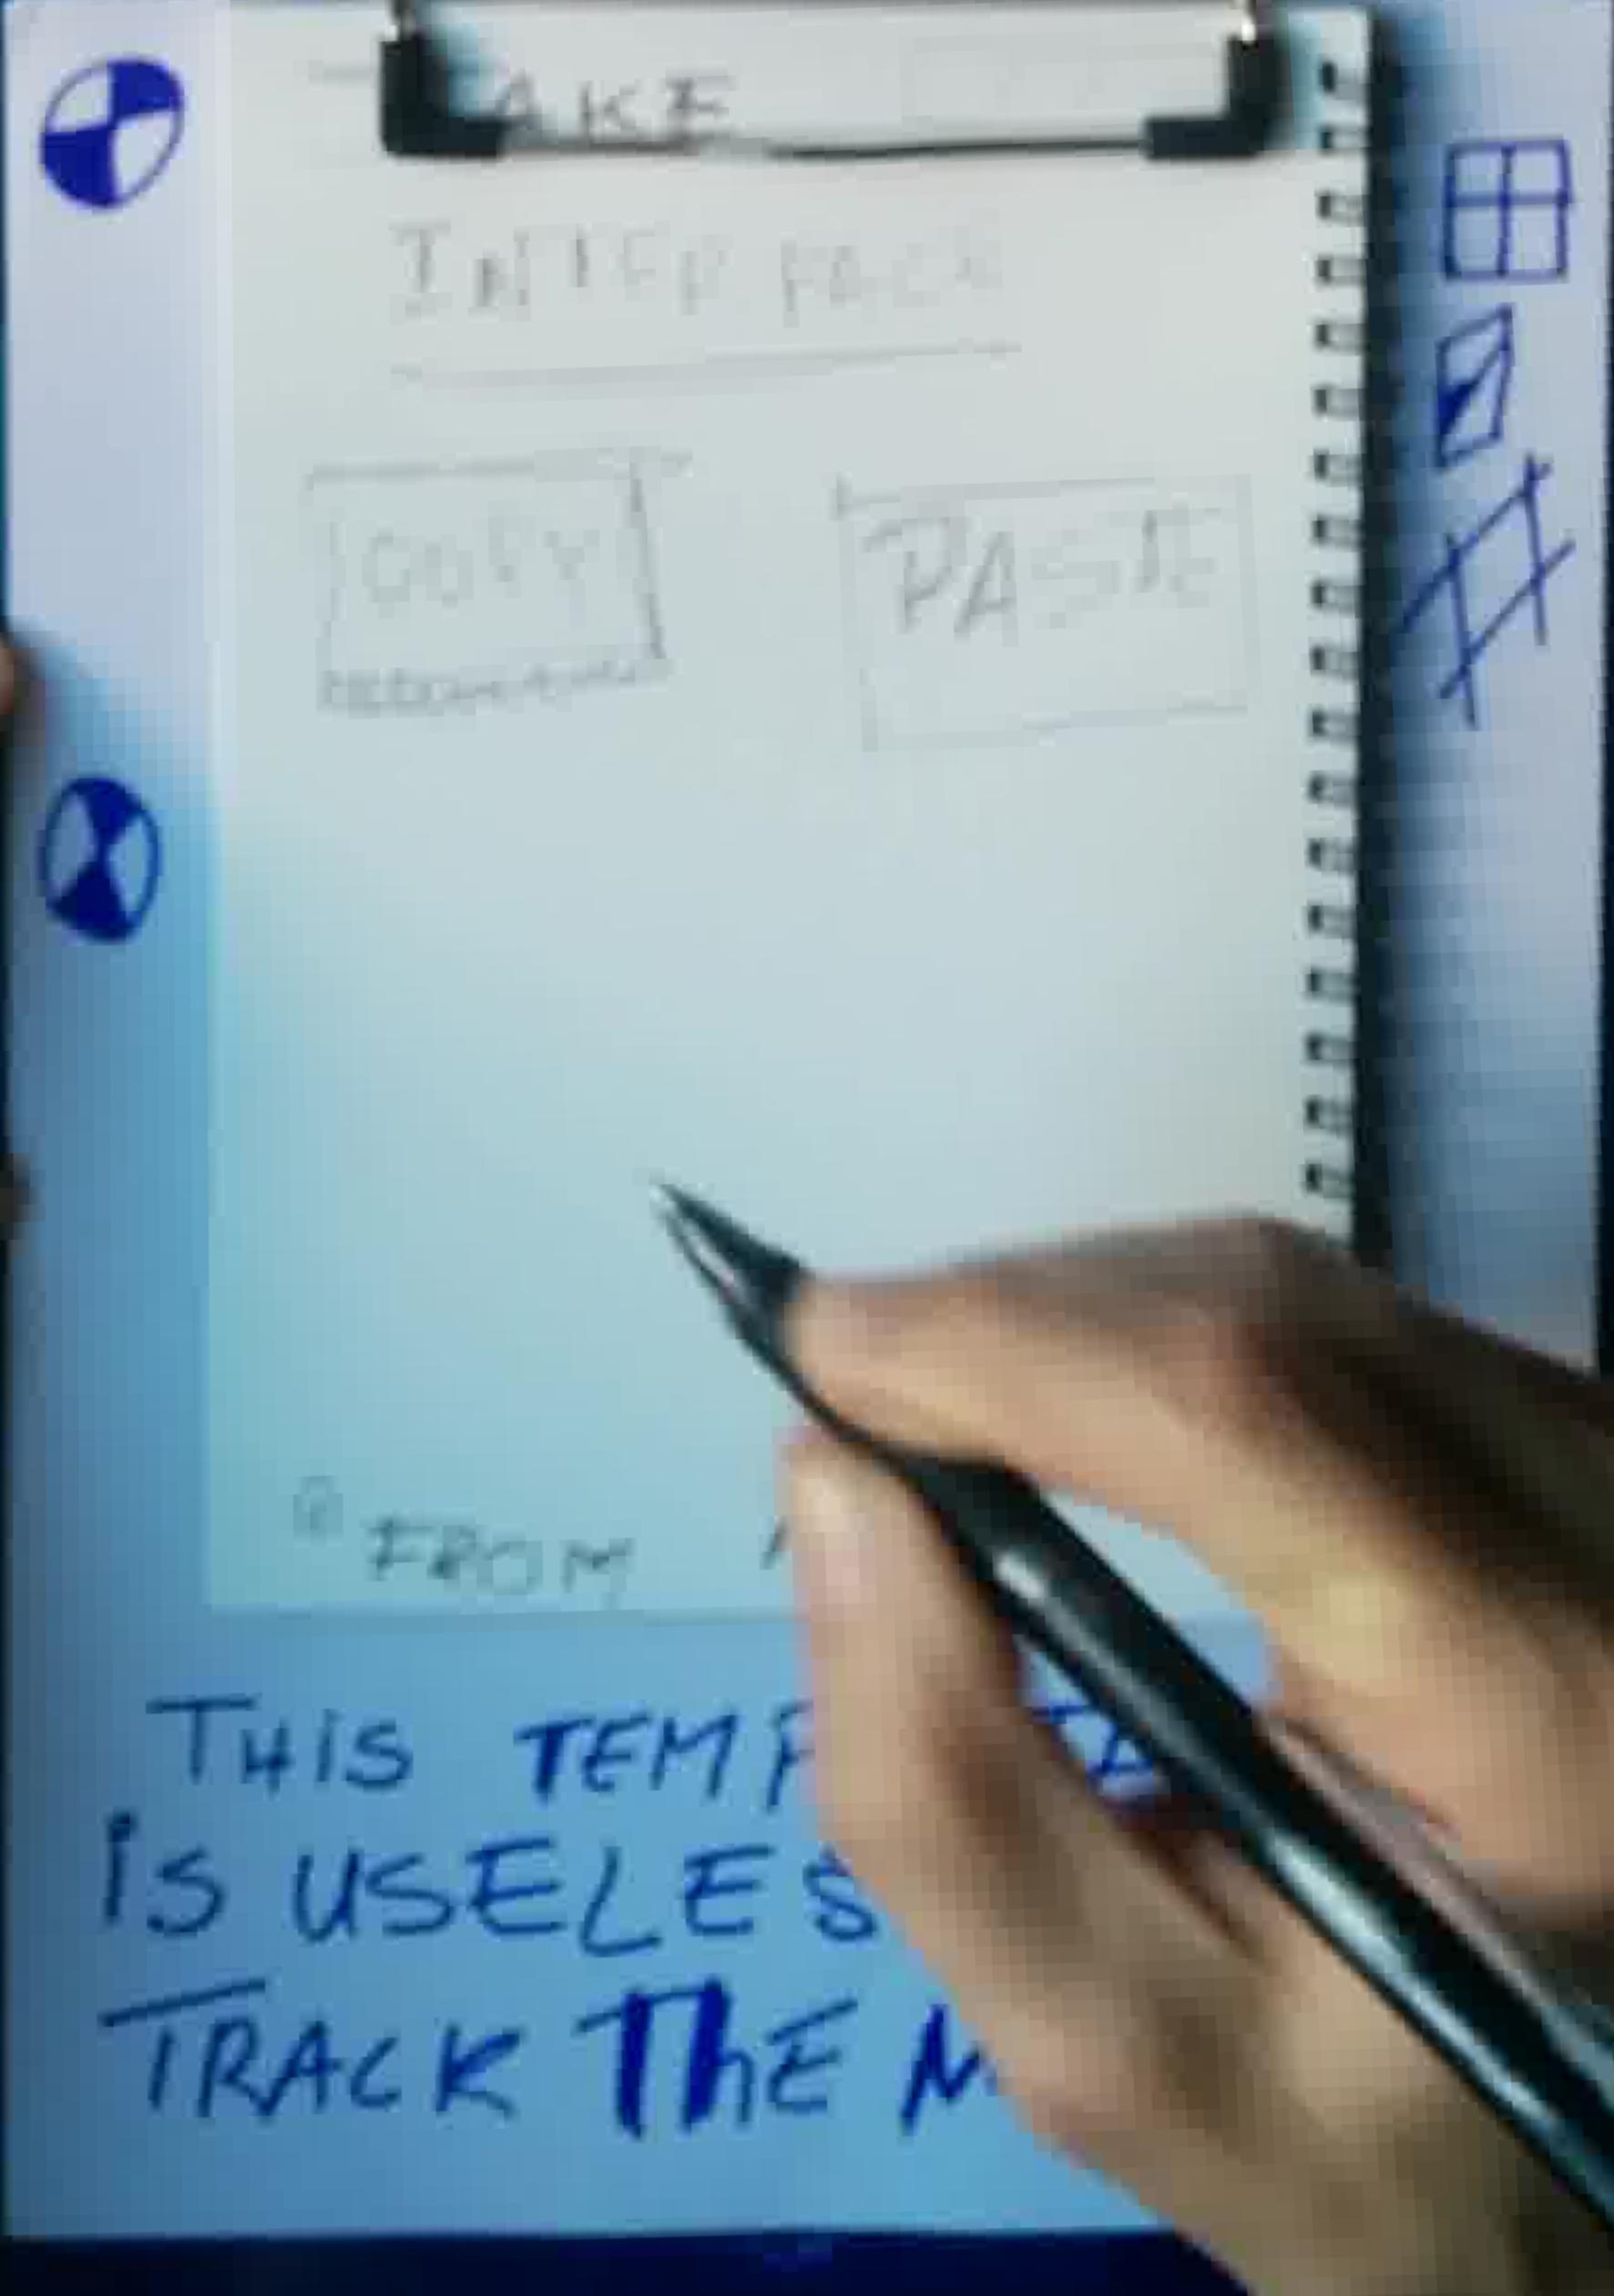 AKE
INTERFACE
COPY PASTE
FROM
THiS TEMP
iS USELES
TRACK ThE M